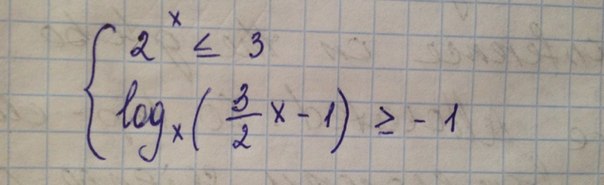 2^x ≤ 3
log_x(3/2 x - 1) ≥ -1